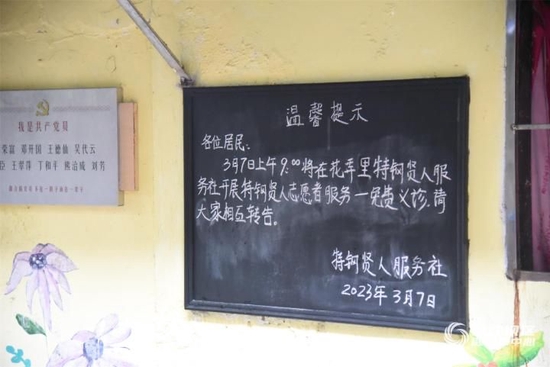 我是共产党员
荣富 邓开国 王德仙 吴代云
臣 王翠萍 丁和平 熊治咸 刘芳
温馨提示
各位居民:
3月7日上午9:00将在花季里特钢贤人服
务社开展特钢贤人志愿者服务—免费义诊,请
大家相互转告。
特钢贤人服务社
2023年3月7日